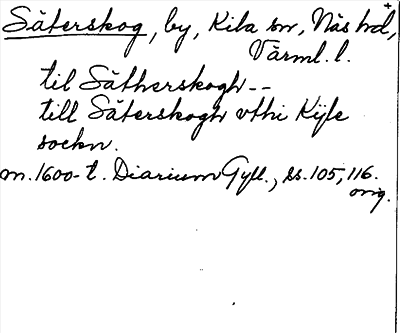 Säterskog, by, Kila sn, Näs hd,
Värml. l.
til Sätherskogh --
till Säterskogh vthi Kijle
sockn.
m. 1600-t. Diarium Gyll., ss. 105, 116.
orig.